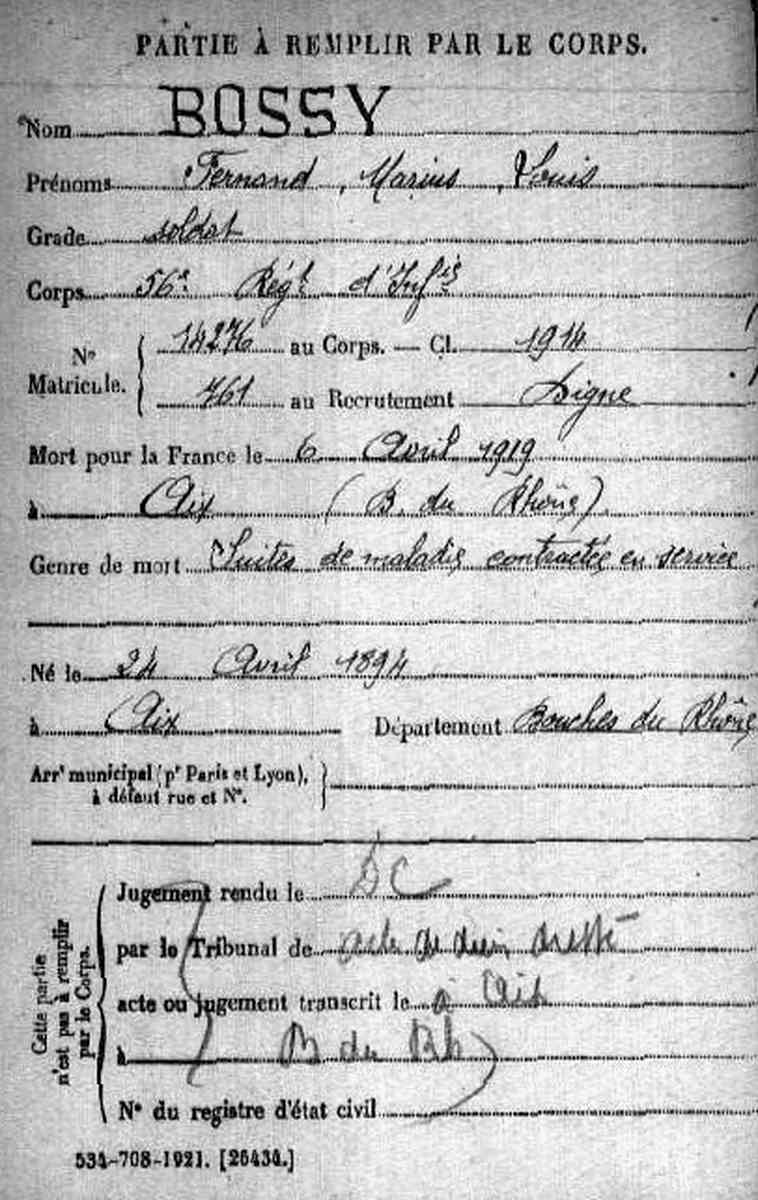 PARTIE À REMPLIR PAR LE CORPS.
Nom BOSSY
Prénoms Fernand, Marius, Louis
Grade soldat
Corps 56e Régt d'Infie
No Matricule. 14276 au Corps. — Cl. 1914
761 au Recrutement Digne
Mort pour la France le 6 Avril 1919
à Aix (B. du Rhône)
Genre de mort Suites de maladie contractée en service
Né le 24 Avril 1894
à Aix Département Bouches du Rhône
Arrt municipal (pr Paris et Lyon),
à défaut rue et No.
Cette partie n'est pas à remplir par le Corps.
Jugement rendu le DC
par le Tribunal de acte de dressé
acte ou jugement transcrit le à Aix
à B du Rh
No du registre d'état civil
534-708-1921. [26434.]